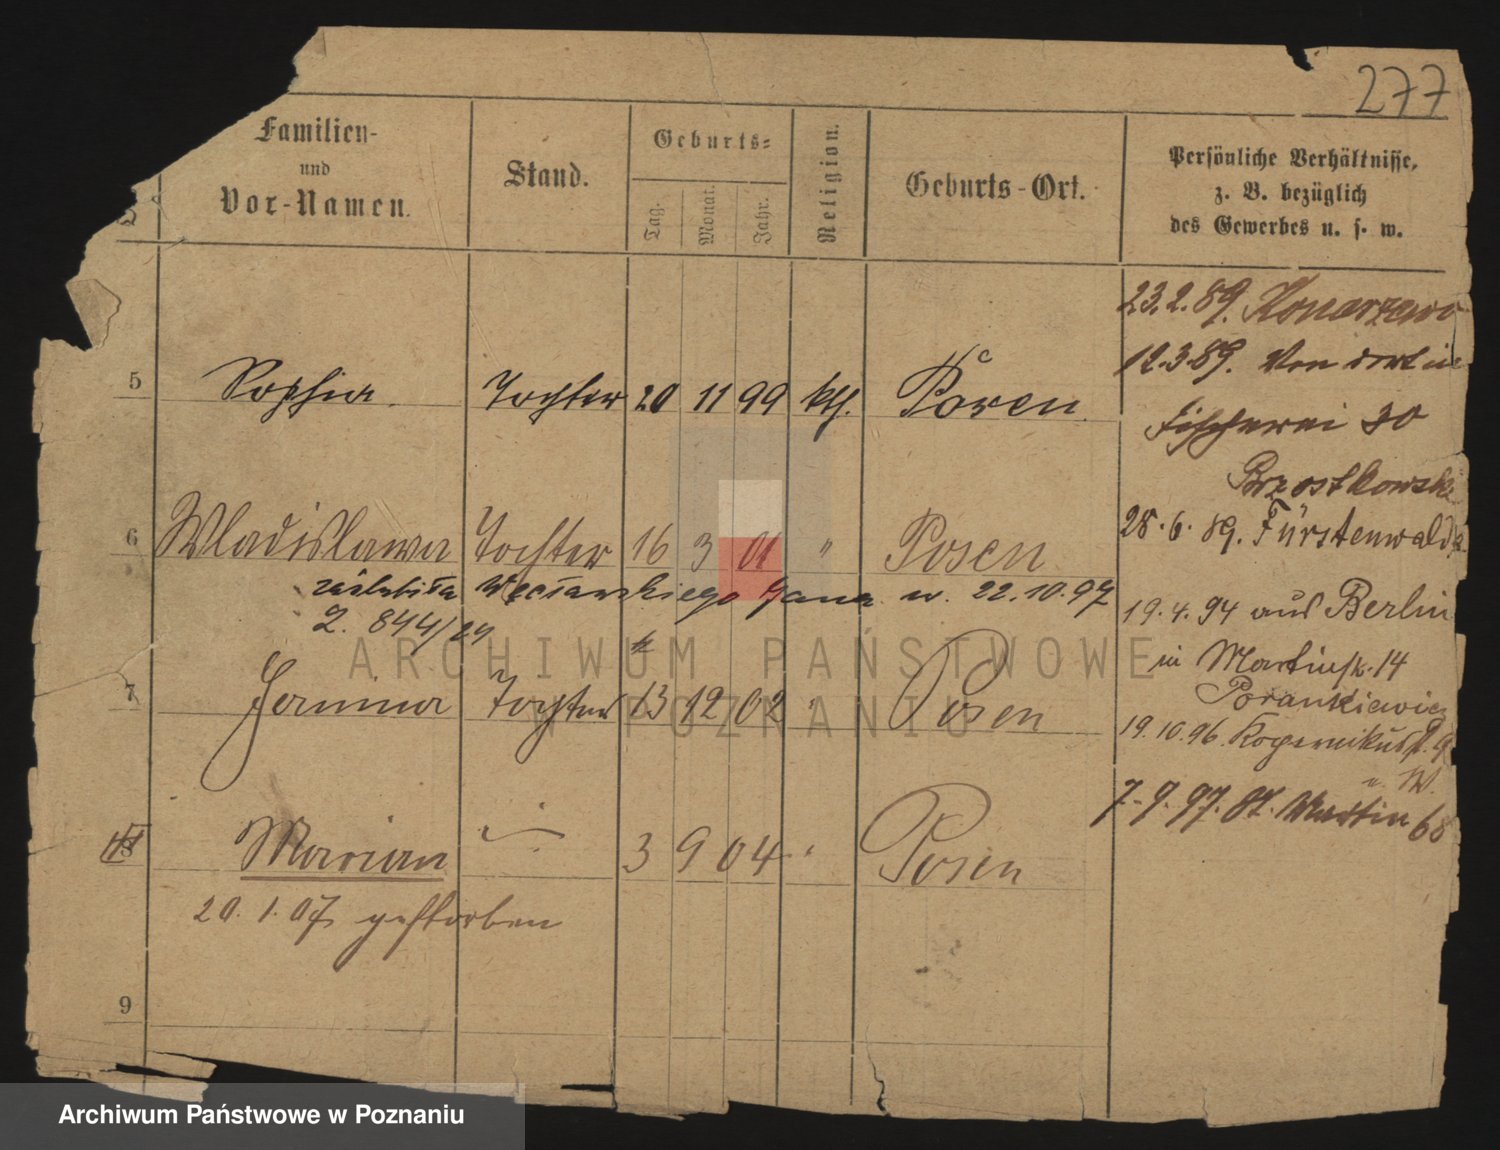 277
Familien- und Vor-Namen.
Stand.
Geburts-
Tag. Monat. Jahr.
Religion.
Geburts-Ort.
Persönliche Verhältnisse,
z. B. bezüglich
des Gewerbes u. s. w.
5 Sophia. Tochter 20 11 99 kth. Posen
6 Wladislawa Tochter 16 3 01 " Posen
zaślubiła Węcławskiego Jana w. 22.10.97
2. 844/24
7 Janina Tochter 13 12 02 " Posen
8 Marian 3 9 04 " Posen
20.1.07 gestorben
9
23.2.89. Konarzewo
12.3.89. Von dort in
Fischerei 30
Brzostkowski
28.6.89. Fürstenwalde
19.4.94 aus Berlin
in Martinstr. 14
Porankiewicz
19.10.96. Kopernikusstr. 9
7.9.97. St. Martin 68
ARCHIWUM PAŃSTWOWE
W POZNANIU
Archiwum Państwowe w Poznaniu